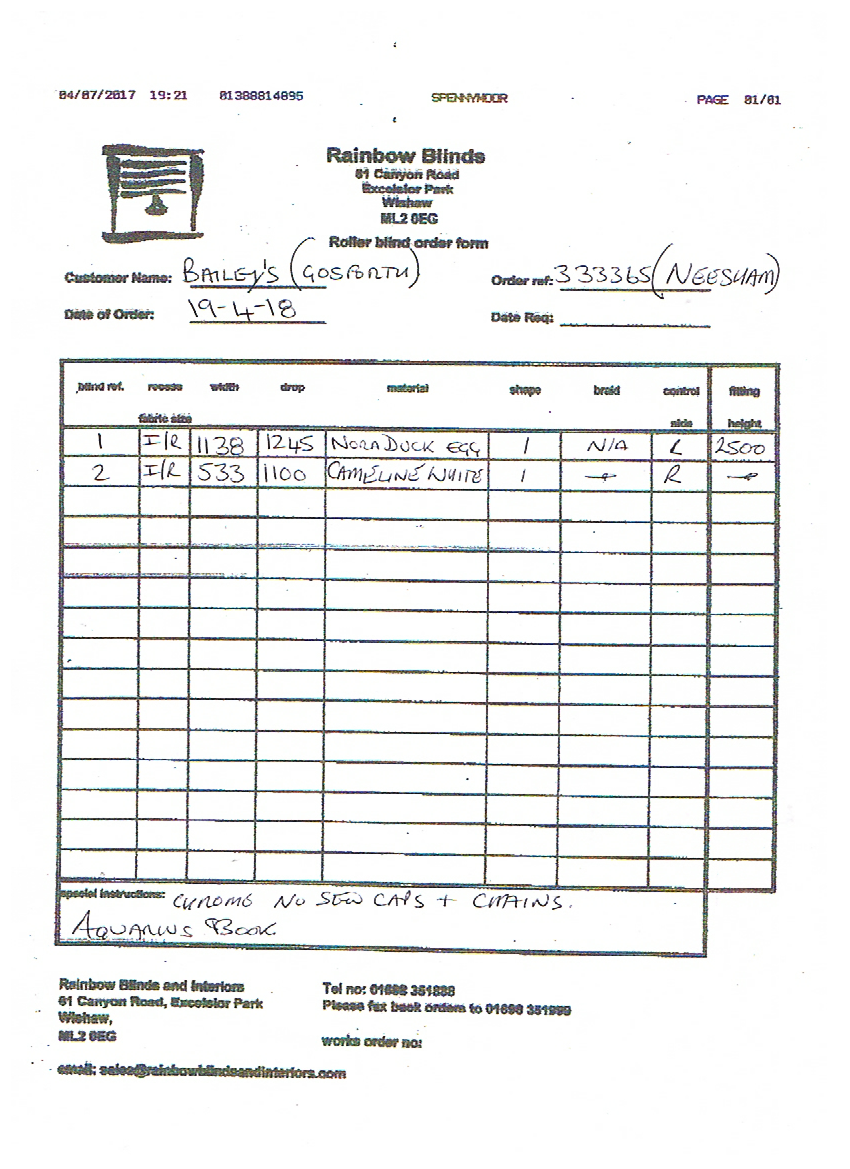 04/07/2017 19:21 01388814895 SPENNYMOOR PAGE 01/01
Rainbow Blinds
61 Canyon Road
Excelsior Park
Wishaw
ML2 0EG
Roller blind order form
Customer Name: BAILEY'S (GOSFORTH) Order ref: 333365 (NEESHAM)
Date of Order: 19-4-18 Date Req:
blind ref. recess width drop material shape braid control fitting
fabric size side height
1 I/R 1138 1245 NORA DUCK EGG 1 N/A L 2500
2 I/R 533 1100 CAMELINE WHITE 1 R
special instructions: CHROME NO SEW CAPS + CHAINS.
AQUARIUS BOOK.
Rainbow Blinds and Interiors Tel no: 01698 351888
61 Canyon Road, Excelsior Park Please fax back orders to 01698 351999
Wishaw,
ML2 0EG works order no:
email: sales@rainbowblindsandinteriors.com